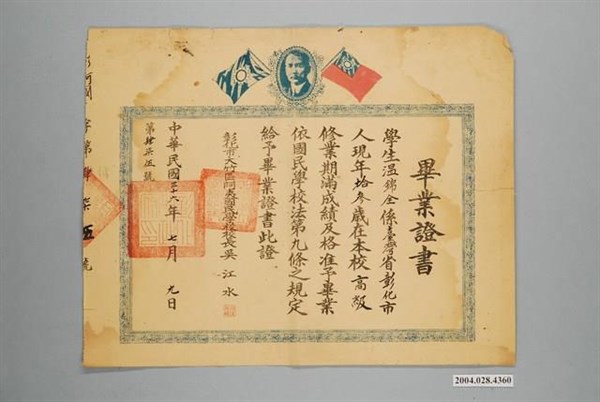 畢業證書
學生溫錦全係臺灣省彰化市
人現年拾參歲在本校高級
修業期滿成績及格准予畢業
依國民學校法第九條之規定
給予畢業證書此證
彰化市大竹區阿夷國民學校校長吳江水
中華民國三十六年七月九日
第肆柒伍號
字第肆柒伍號
2004.028.4360